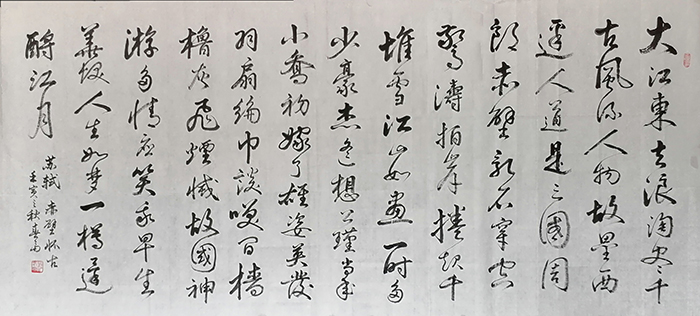 大江東去浪淘尽千
古風流人物故壘西
邊人道是三國周
郎赤壁乱石穿空
驚濤拍岸捲起千
堆雪江山如畫一时多
少豪杰遙想公瑾當年
小喬初嫁了雄姿英發
羽扇綸巾談笑间檣
櫓灰飛煙滅故國神
游多情應笑我早生
華髮人生如梦一樽還
酹江月
苏轼 赤壁怀古
之秋